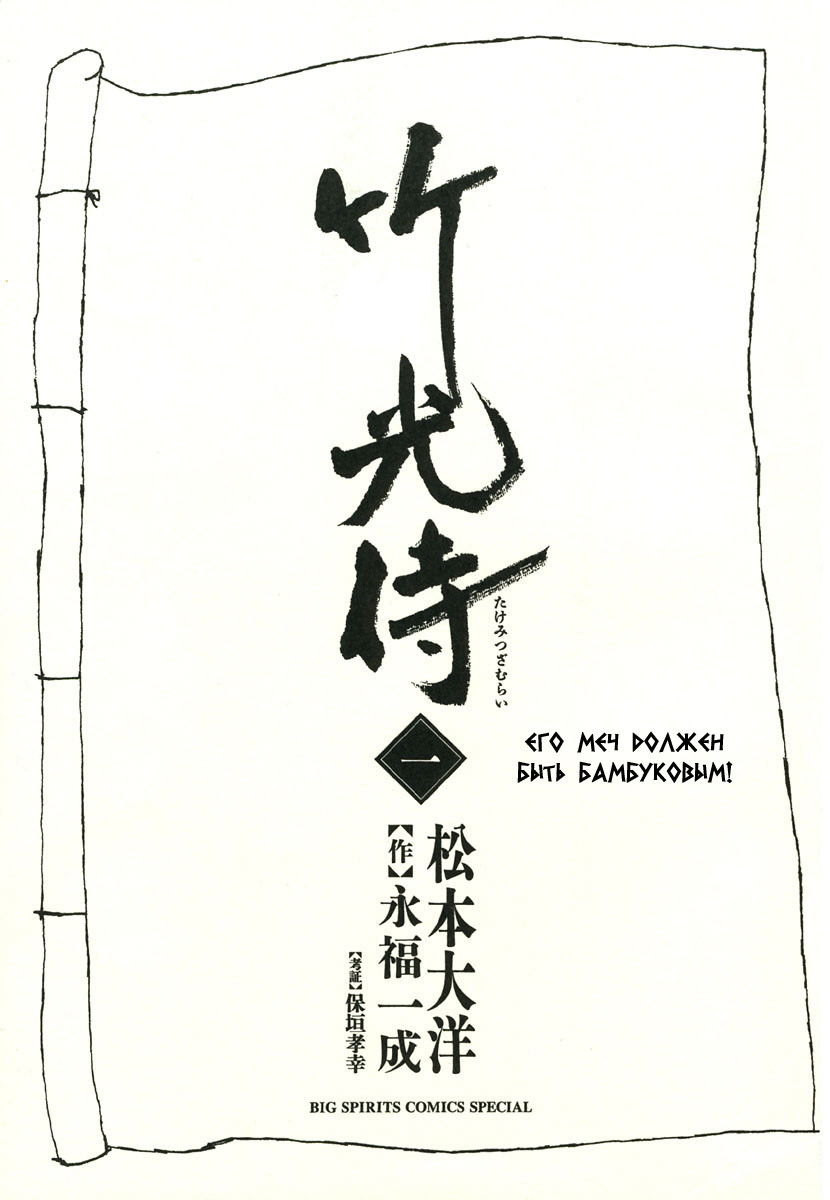 竹光侍
たけみつざむらい
一
ЕГО МЕЧ ДОЛЖЕН
БЫТЬ БАМБУКОВЫМ!
松本大洋
【作】永福一成
【考証】保垣孝幸
BIG SPIRITS COMICS SPECIAL